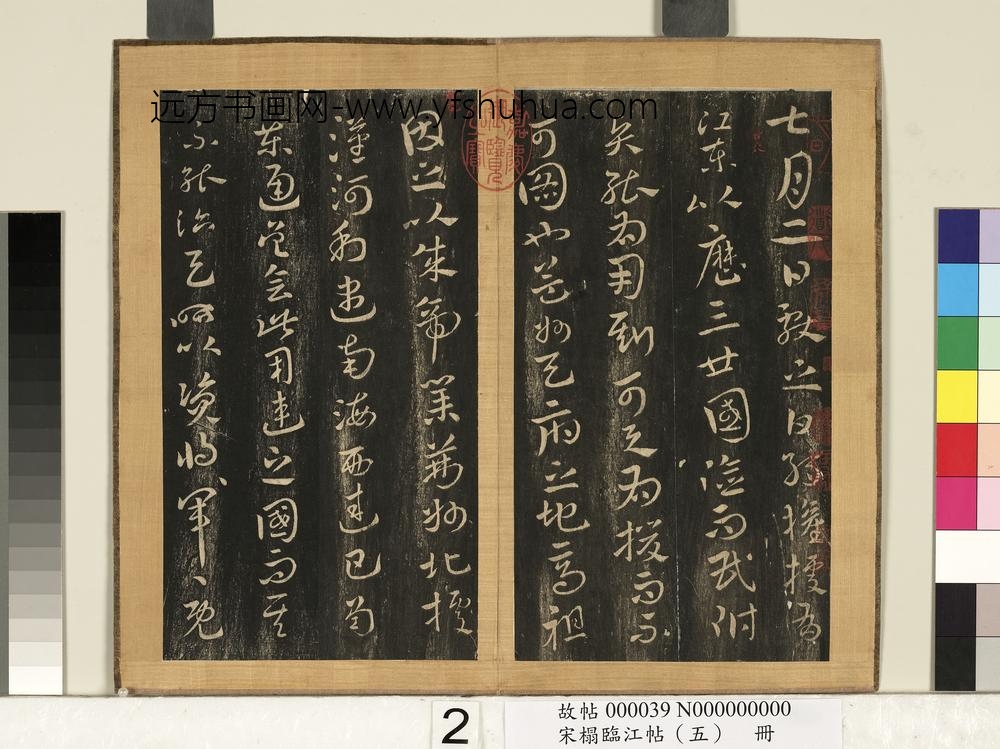 远方书画网-www.yfshuhua.com
七月二日敬之曰孫權據有
江東以歷三世國險而民附
賢能為用則可足為援而不
可圖也益州天府之地高祖
因之以成帝業荊州北據
漢沔利盡南海西連巴蜀
東通吳會此用武之國而其
不能治天所以資將軍々既
嘉慶御覽之寶
2
故帖 000039 N000000000
宋榻臨江帖（五） 冊